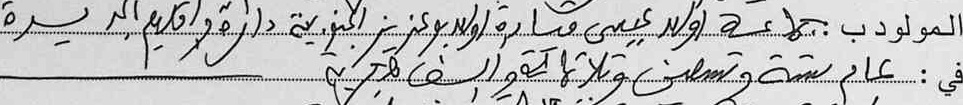 المولود ب : جماعة اولاد عيسى قيادة اولاد بوعزيز الجنوبية دائرة واقليم الجديدة
في : عام ستة وتسعين وثلاثمائة والف هجرية